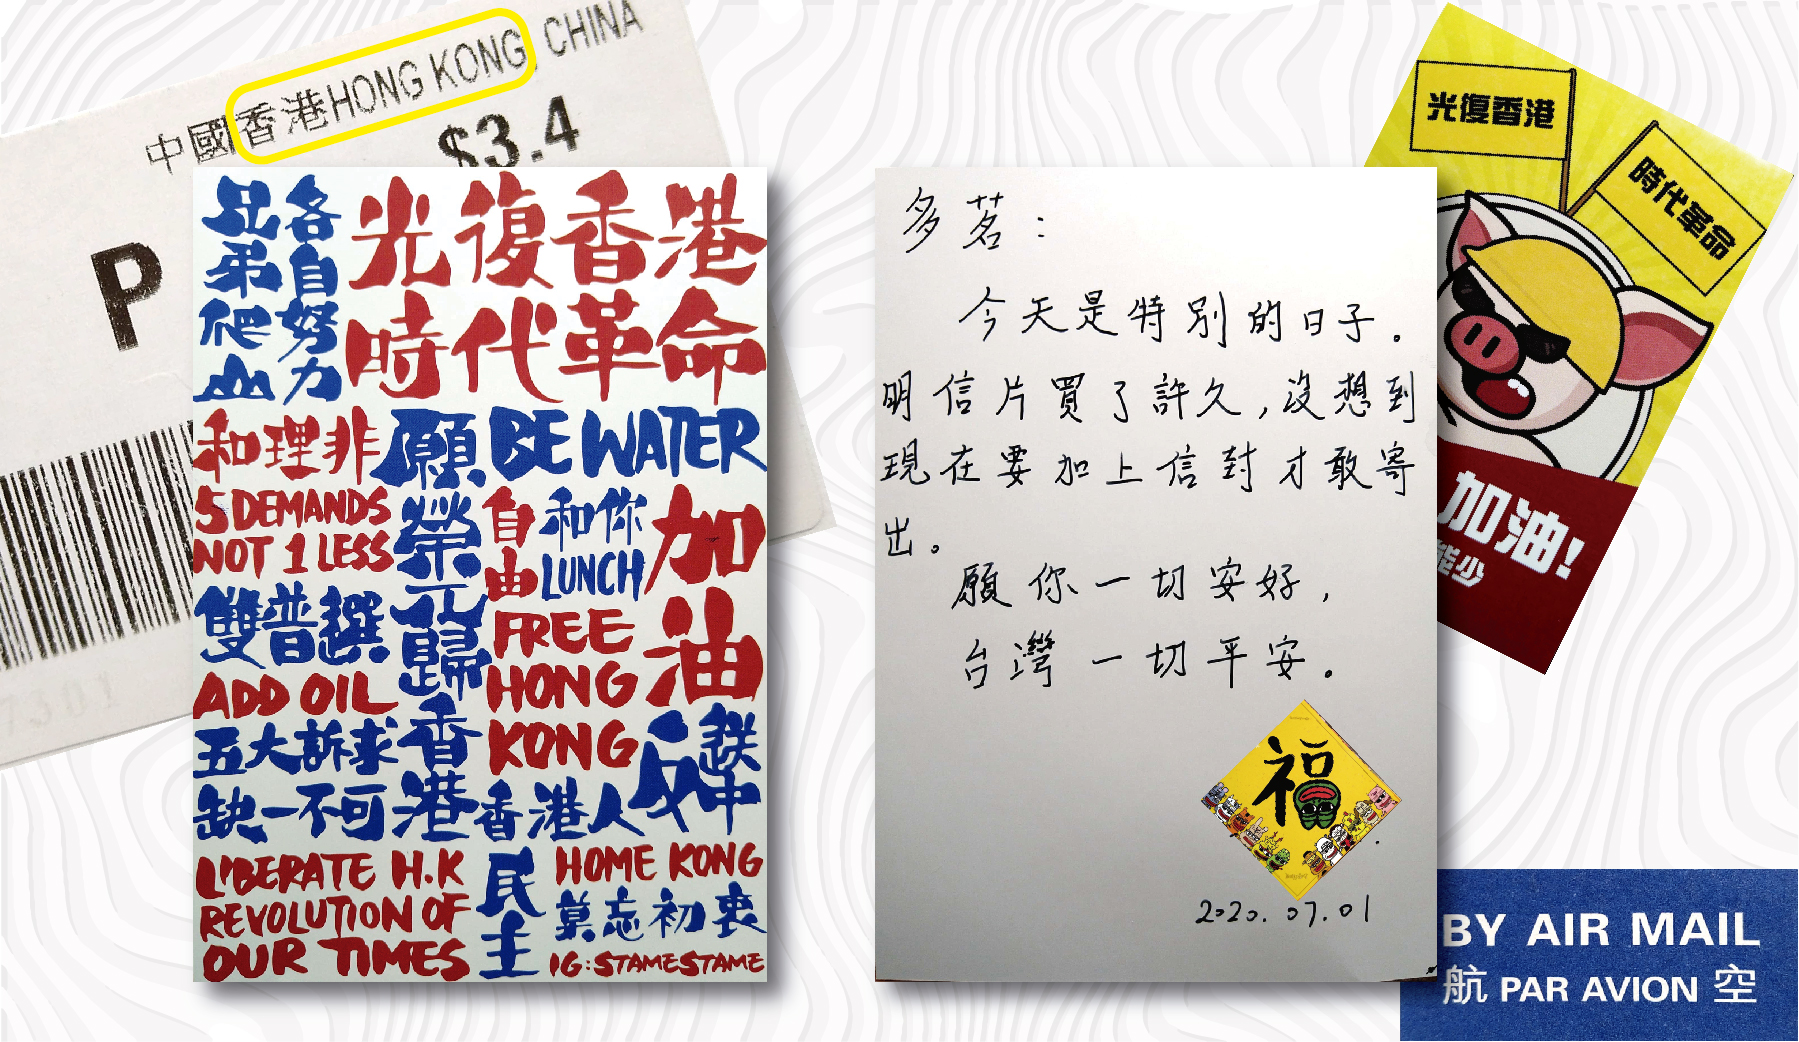 中國香港HONG KONG, CHINA
$3.4
P
兄弟爬山
各自努力
光復香港
時代革命
和理非
願榮光歸香港
BE WATER
5 DEMANDS
NOT 1 LESS
自由
和你
LUNCH
加油
雙普選
FREE
HONG
KONG
ADD OIL
五大訴求
缺一不可
香港人
反送中
LIBERATE H.K
REVOLUTION OF
OUR TIMES
民主
HOME KONG
莫忘初衷
IG:STAMESTAME
多茗：
今天是特別的日子。
明信片買了許久,沒想到
現在要加上信封才敢寄
出。
願你一切安好,
台灣一切平安。
福
2020.07.01
光復香港
時代革命
加油!
能少
BY AIR MAIL
航 PAR AVION 空